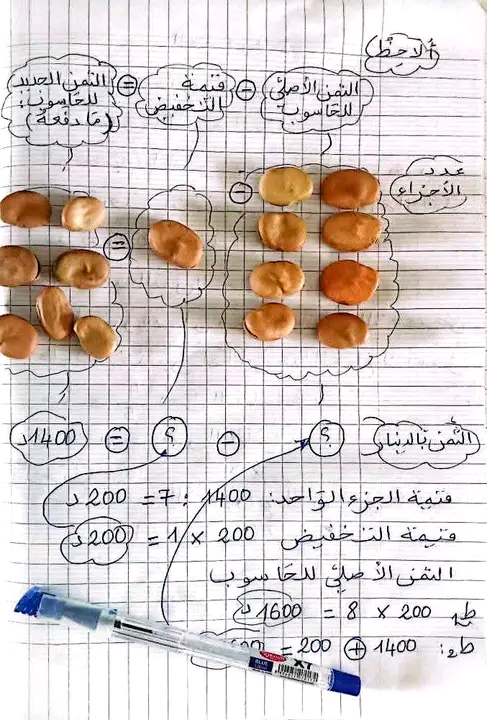 ألاحظ
الثمن الأصلي للحاسوب - قيمة التخفيض = الثمن الجديد للحاسوب: (ما دفعه)
عدد الأجزاء
- =
الثمن بالدينار ؟ - ؟ = 1400 د
قيمة الجزء الواحد: 1400 : 7 = 200 د
قيمة التخفيض 200 × 1 = 200 د
الثمن الأصلي للحاسوب
ط1 200 × 8 = 1600 د
ط2: 1400 + 200 =
X7
BLUE